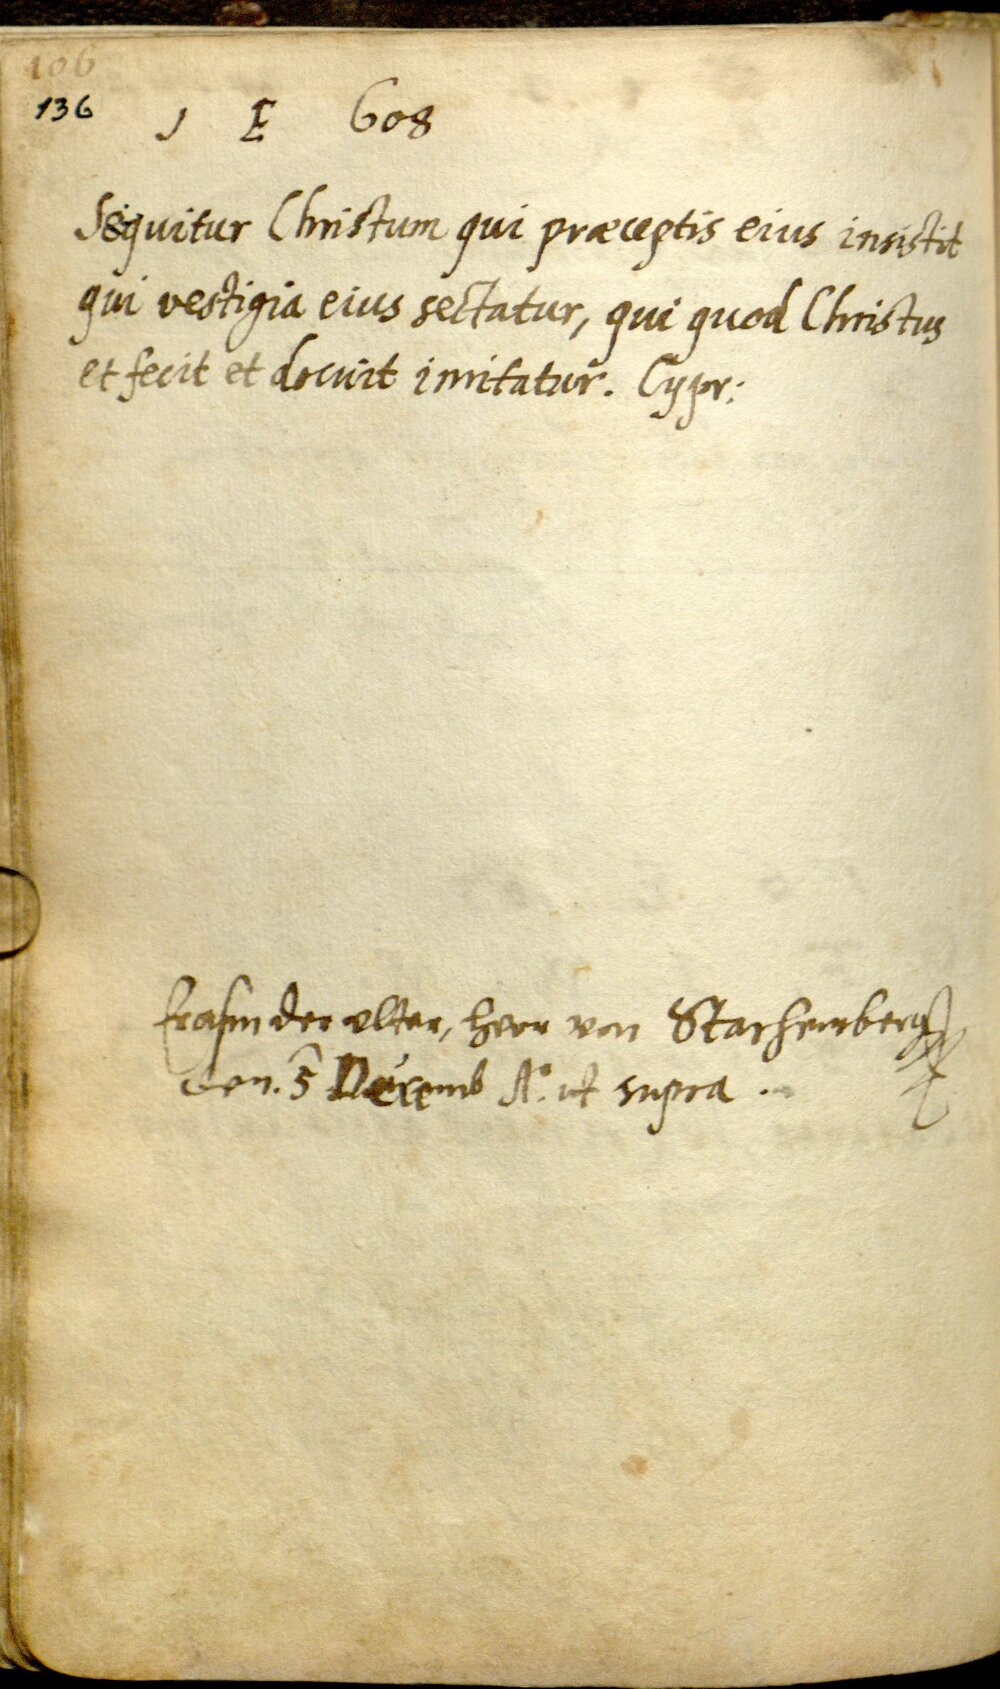 106
136
1 E 608
Sequitur Christum qui præceptis eius insistit
qui vestigia eius sectatur, qui quod Christus
et fecit et docuit imitatur. Cypr:
Erasm der elter, herr von Starhemberg
den. 5 Decemb A:o ut supra